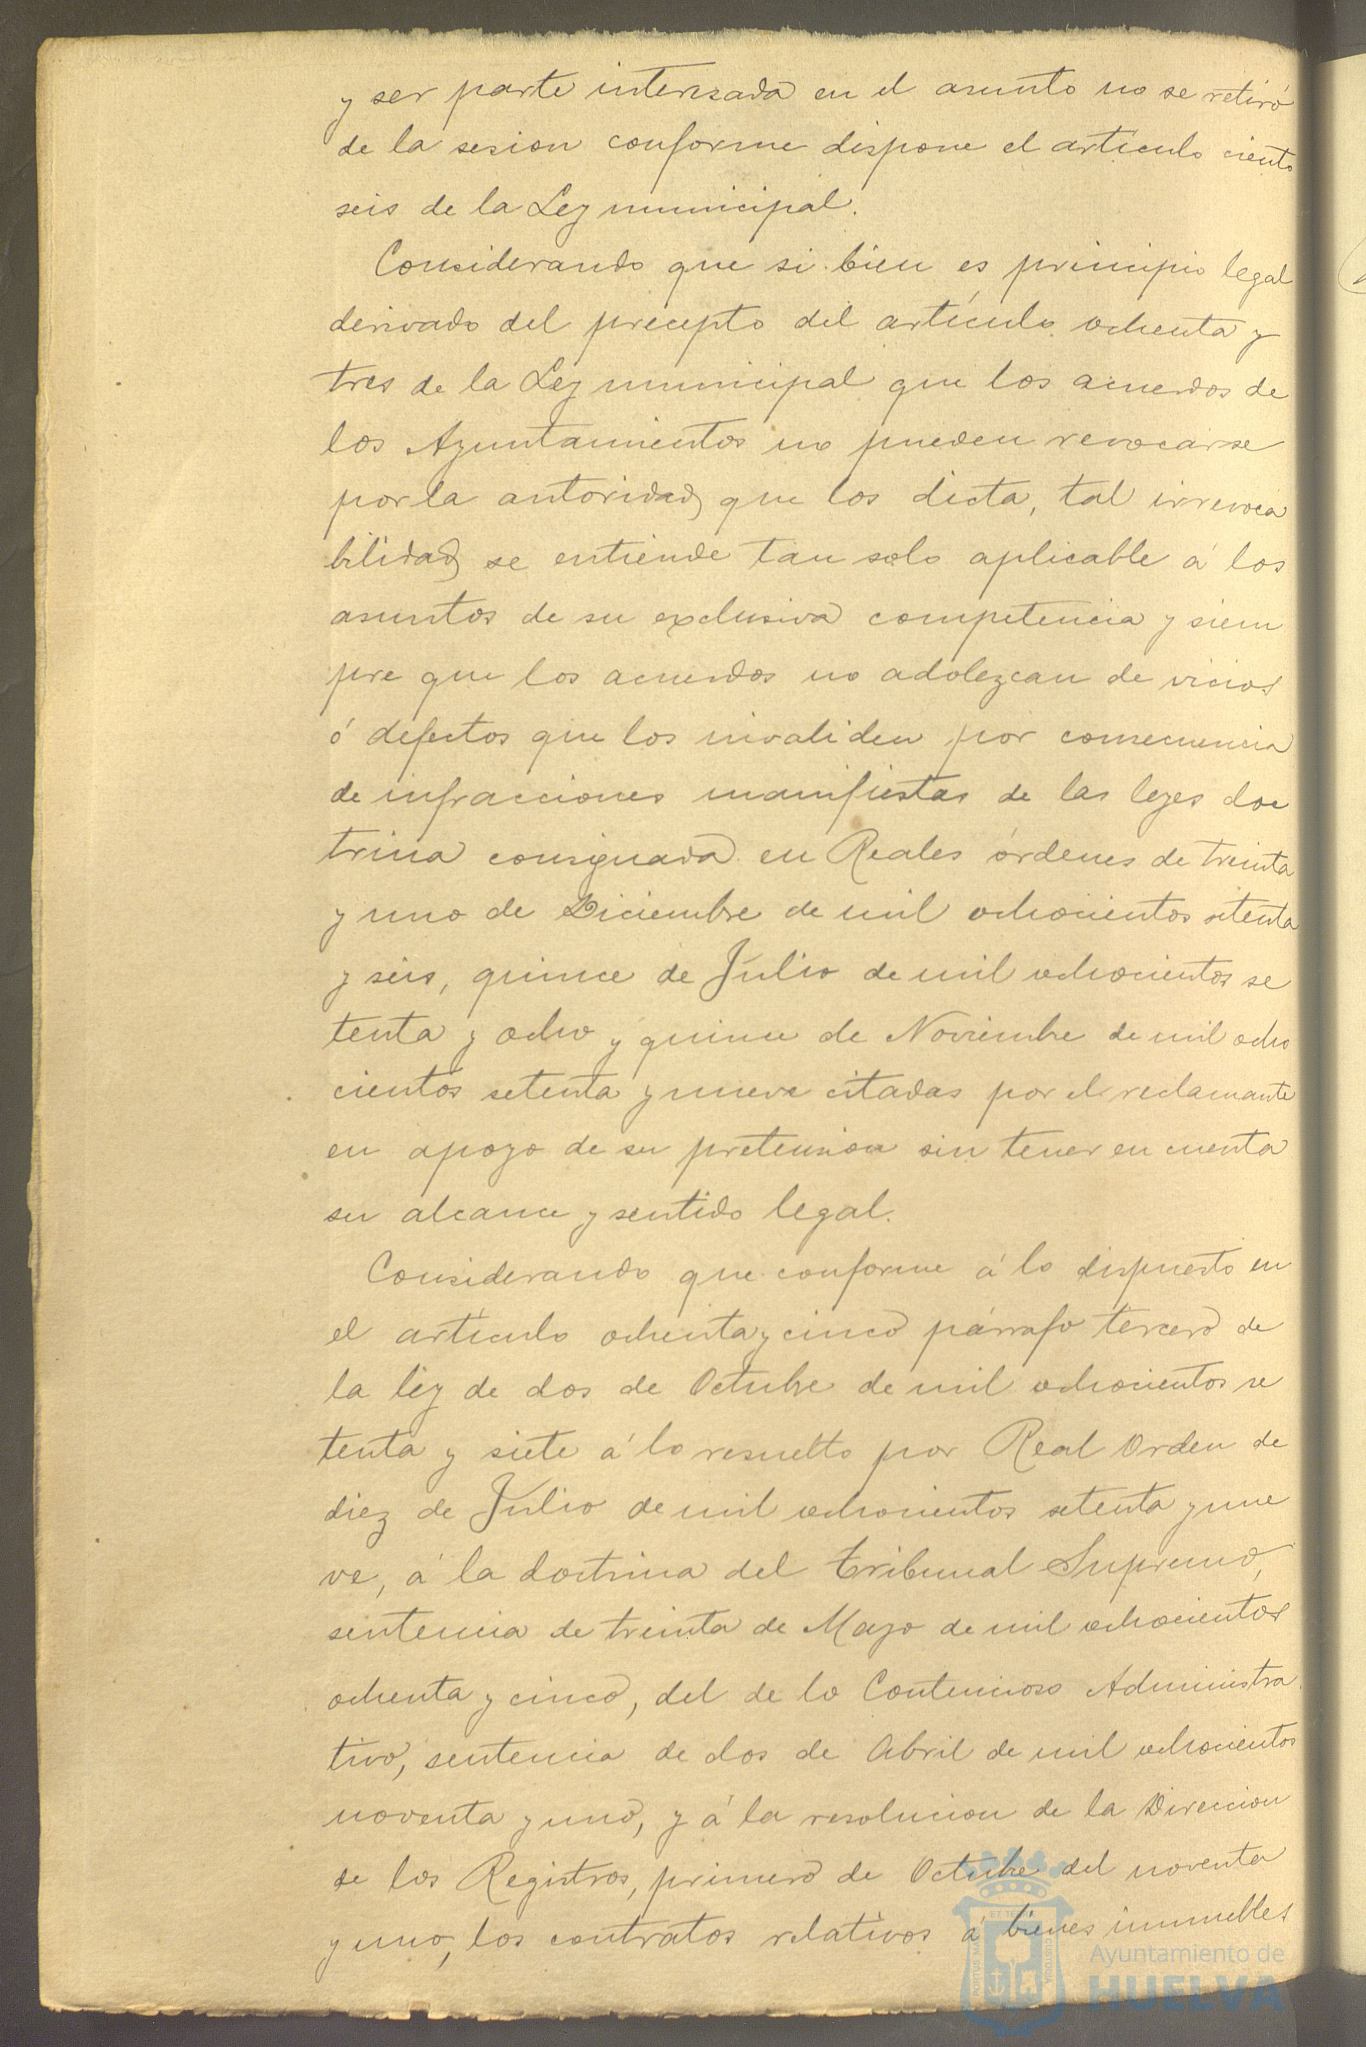 y ser parte interesada en el asunto no se retiró
de la sesion conforme dispone el artículo ciento
seis de la Ley municipal.
Considerando que si bien es principio legal
derivado del precepto del artículo ochenta y
tres de la Ley municipal que los acuerdos de
los Ayuntamientos no pueden revocarse
por la autoridad que los dicta, tal irrevoca
bilidad se entiende tan solo aplicable á los
asuntos de su exclusiva competencia y siem
pre que los acuerdos no adolezcan de vicios
ó defectos que los invaliden por consecuencia
de infracciones manifiestas de las leyes doc
trina consignada en Reales órdenes de treinta
y uno de Diciembre de mil ochocientos setenta
y seis, quince de Julio de mil ochocientos se
tenta y ocho y quince de Noviembre de mil ocho
cientos setenta y nueve citadas por el reclamante
en apoyo de su pretension sin tener en cuenta
su alcance y sentido legal.
Considerando que conforme á lo dispuesto en
el artículo ochenta y cinco párrafo tercero de
la ley de dos de Octubre de mil ochocientos se
tenta y siete á lo resuelto por Real Orden de
diez de Julio de mil ochocientos setenta y nue
ve, á la doctrina del tribunal Supremo,
sentencia de treinta de Mayo de mil ochocientos
ochenta y cinco, del de lo Contencioso Administra
tivo, sentencia de dos de Abril de mil ochocientos
noventa y uno, y á la resolucion de la Direccion
de los Registros, primero de Octubre del noventa
y uno, los contratos relativos á bienes inmuebles
Ayuntamiento de
HUELVA